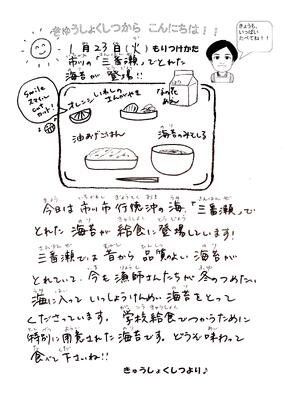 きゅうしょくしつから こんにちは!!
きょうも、
いっぱい
たべてね!!
1月23日(火)もりつけかた
市川の「三番瀬」でとれた
海苔が登場!!
Smile
スマイル
cut
カット!
オレンジ
いわしの
さんがやき
なのた
めん
油あげごはん
海苔のみそしる
今日は市川市行徳沖の海、「三番瀬」で
とれた海苔が給食に登場しています!
三番瀬では昔から品質のよい海苔が
とれていて、今も漁師さんたちが冬のつめたい
海に入っていっしょうけんめい海苔をとって
くださっています。学校給食でつかうために
特別に用意された海苔です。どうぞ味わって
食べて下さいね!!
きゅうしょくしつより♪